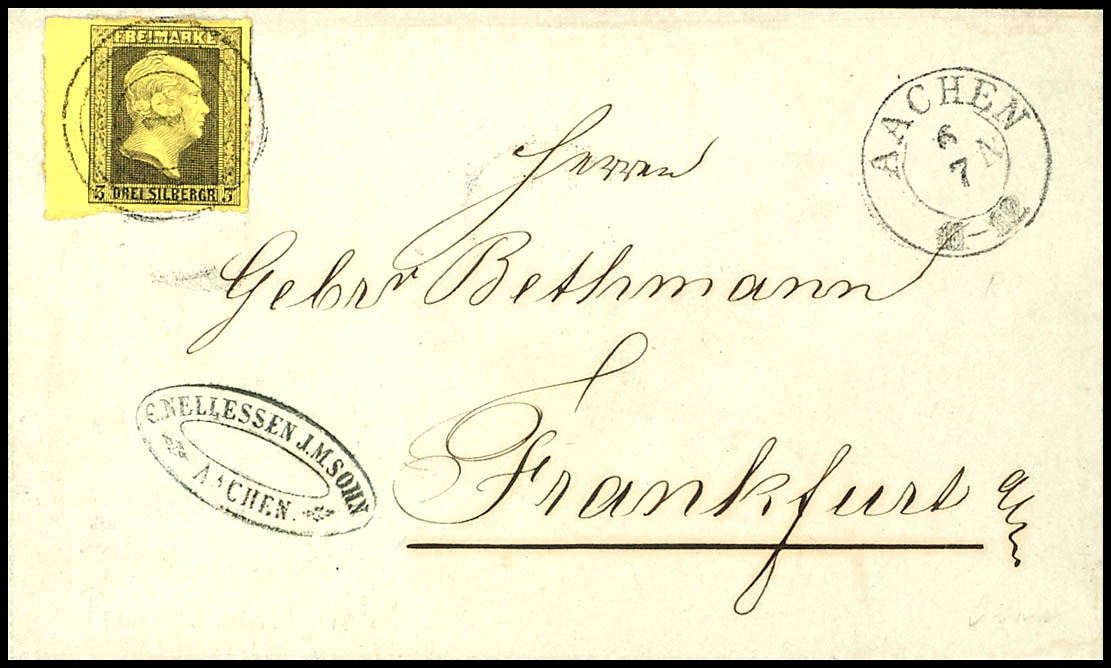 FREIMARKE
3 DREI SILBERGR 3
AACHEN
6
7
Herren
Gebrr Bethmann
Frankfurt a/m
C. NELLESSEN J.M. SOHN
AACHEN.